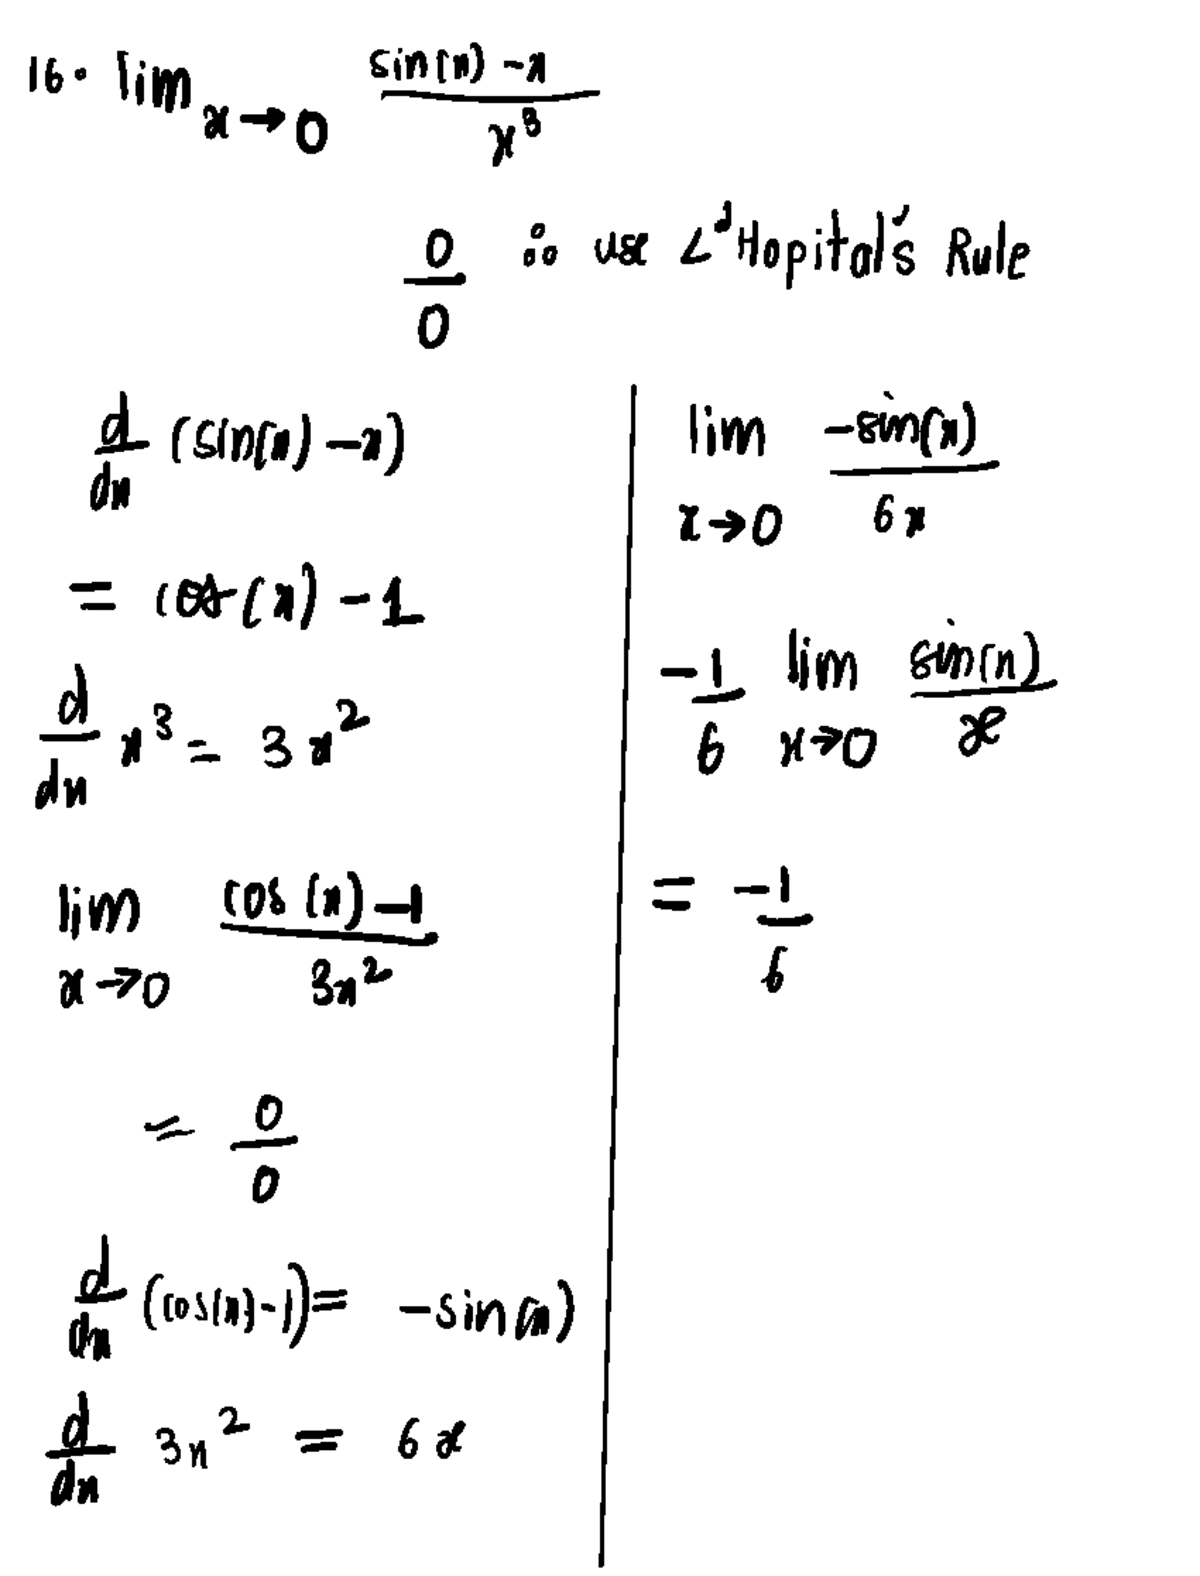 16. lim x→0 (sin(x) - x)/x³
0/0 ∴ use L'Hopital's Rule
d/dx (sin(x) - x)
= cos(x) - 1
d/dx x³ = 3x²
lim x→0 (cos(x) - 1)/3x²
= 0/0
d/dx (cos(x) - 1) = -sin(x)
d/dx 3x² = 6x
lim x→0 -sin(x)/6x
-1/6 lim x→0 sin(x)/x
= -1/6